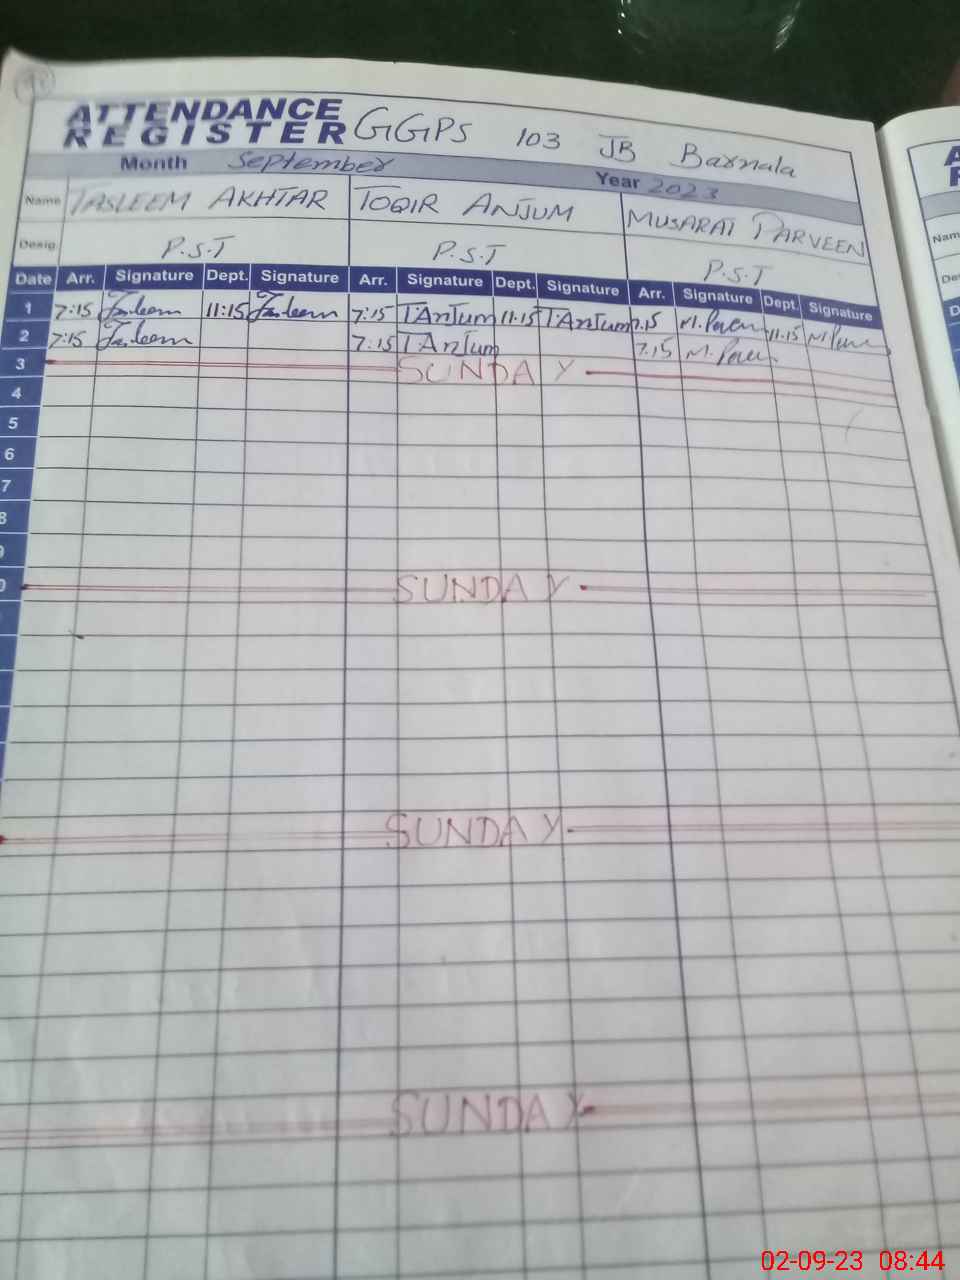 ATTENDANCE
REGISTER GGPS 103 JB Barnala
Month September Year 2023
Name TASLEEM AKHTAR TOQIR ANJUM MUSARAT PARVEEN
Desig. P.S.T P.S.T P.S.T
Date Arr. Signature Dept. Signature Arr. Signature Dept. Signature Arr. Signature Dept. Signature
1 7:15 Tasleem 11:15 Tasleem 7:15 TAnjum 11:15 TAnjum 7.15 M. Parveen 11.15
2 7:15 Tasleem 7:15 TAnjum 7.15 M. Parveen
3 SUNDAY
4
5
6
7
8
9
SUNDAY
SUNDAY
SUNDAY
Nam
02-09-23 08:44